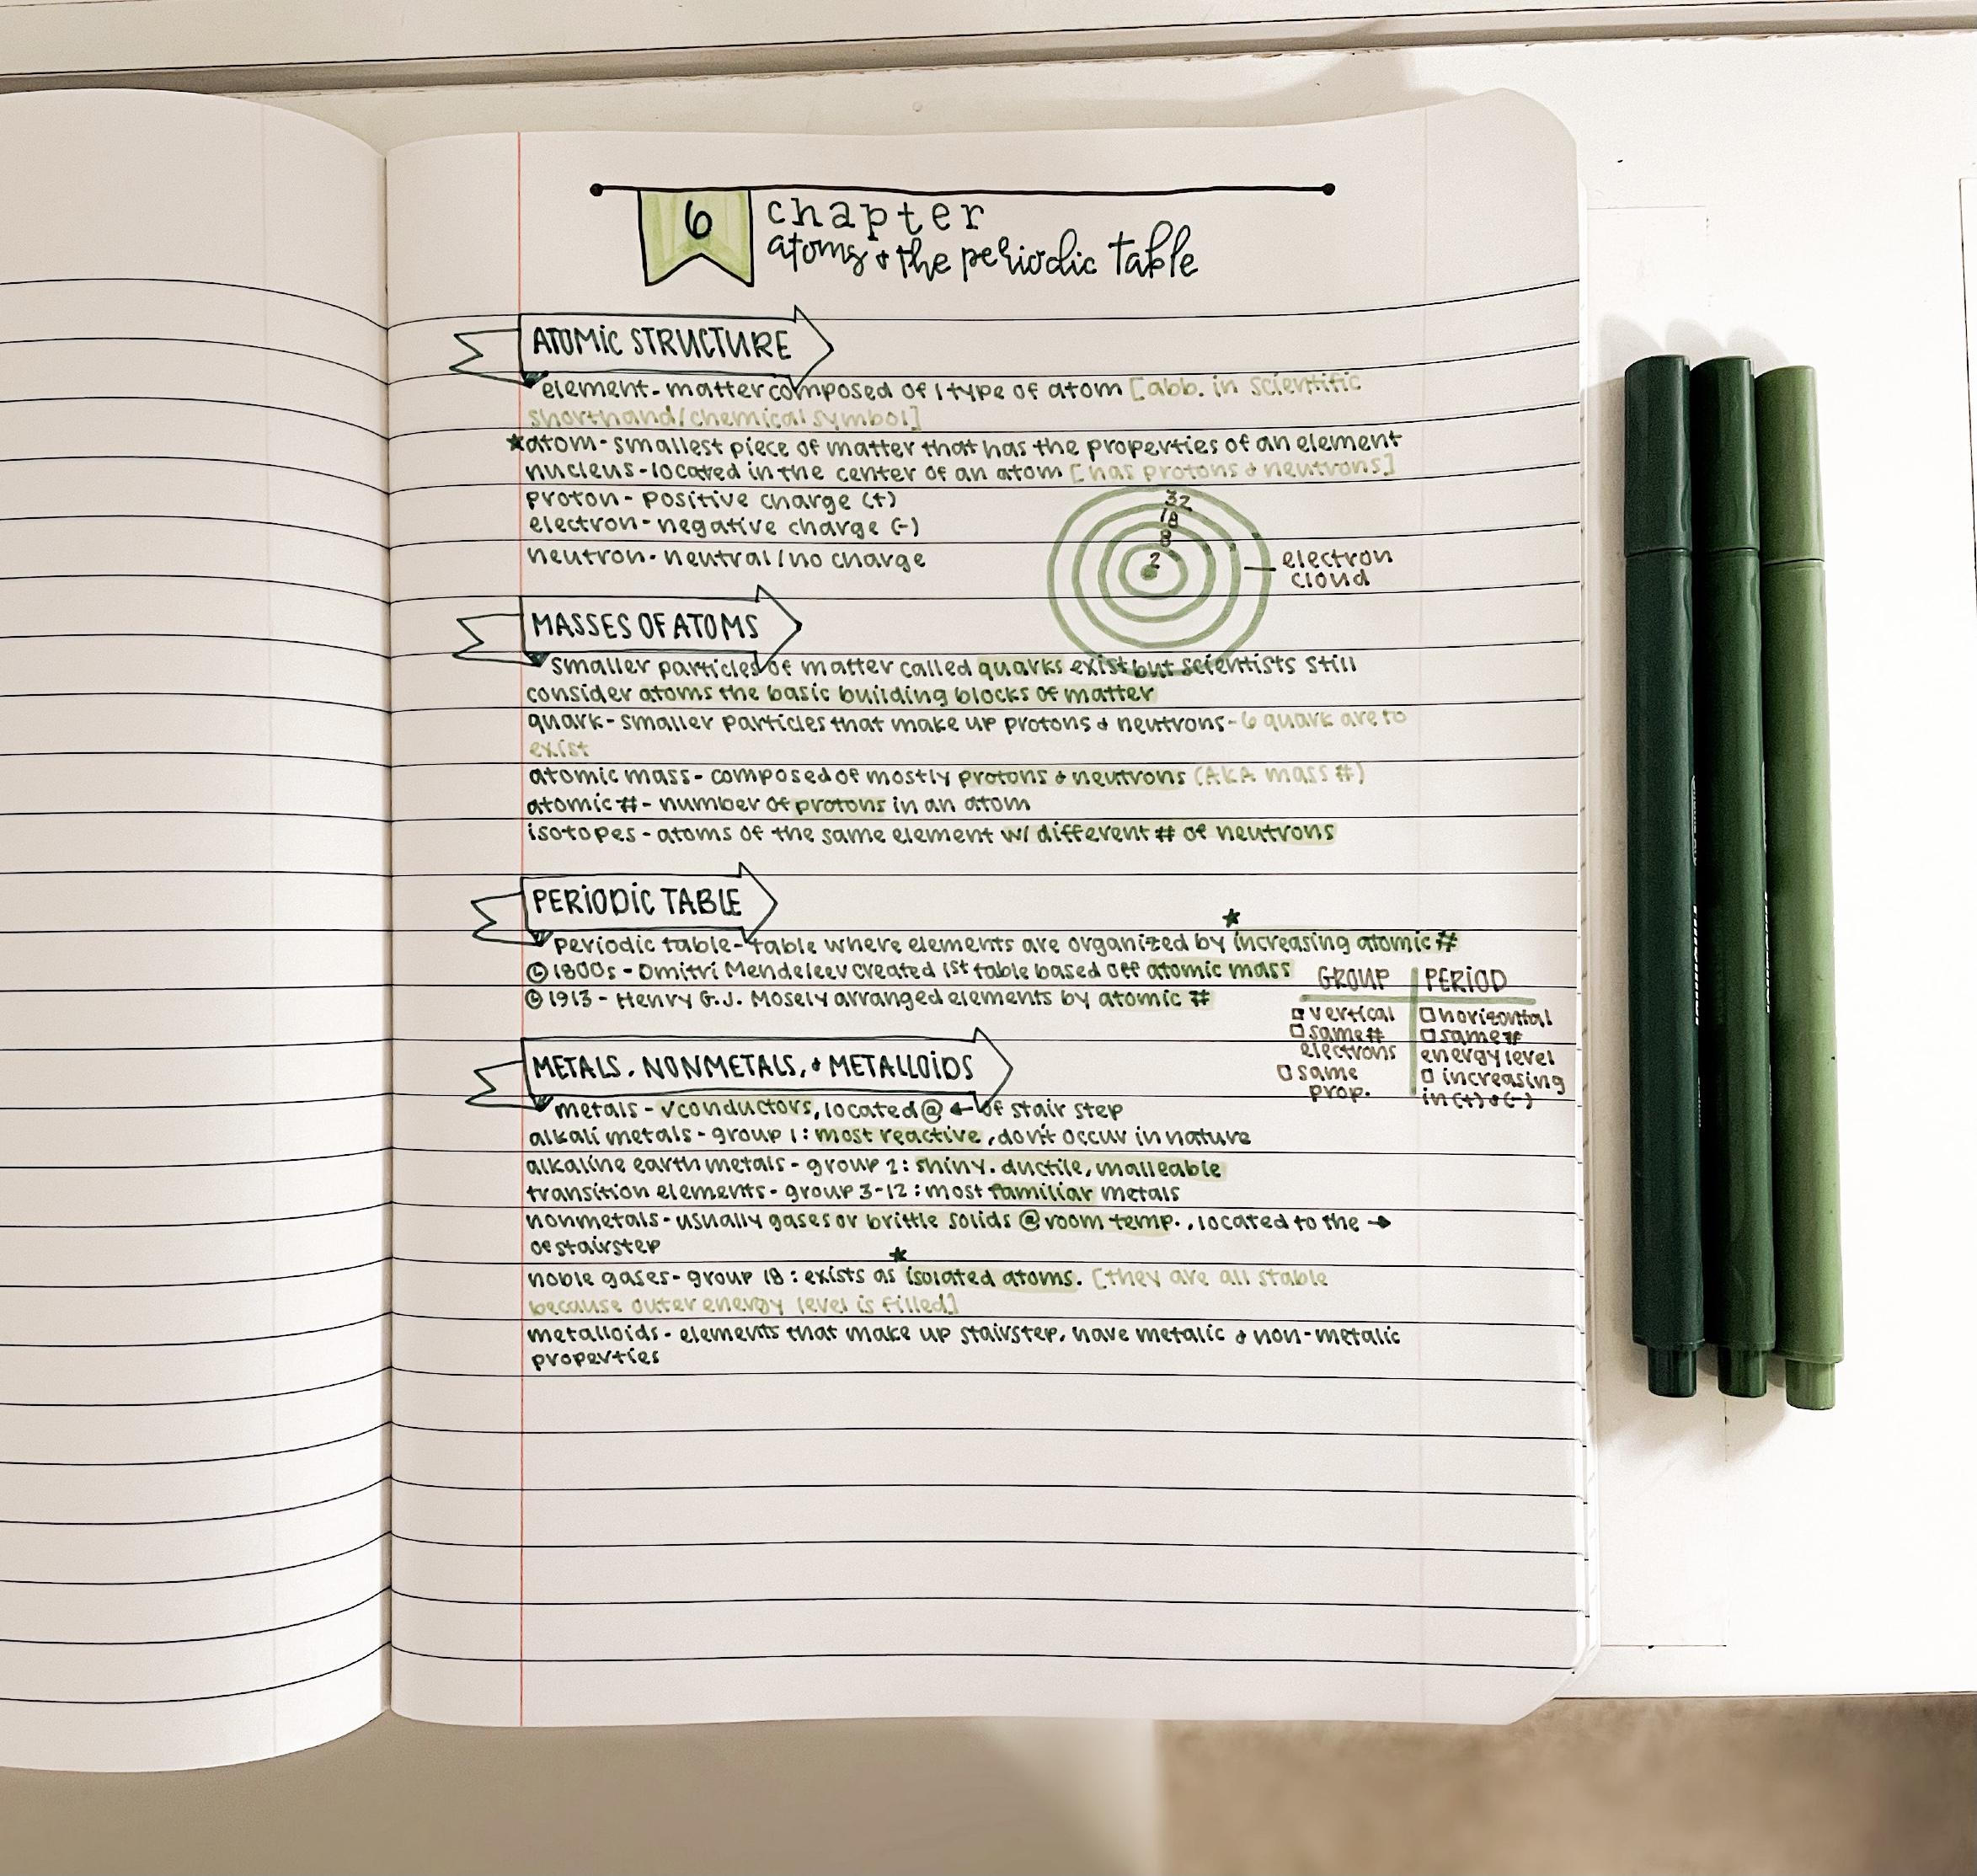 6
chapter
atoms & the periodic table
ATOMIC STRUCTURE
element - matter composed of 1 type of atom [abb. in scientific
shorthand/chemical symbol]
★atom - smallest piece of matter that has the properties of an element
nucleus - located in the center of an atom [has protons & neutrons]
proton - positive charge (+)
electron - negative charge (-)
neutron - neutral/no charge
32
18
8
2
electron
cloud
MASSES OF ATOMS
smaller particles of matter called quarks exist but scientists still
consider atoms the basic building blocks of matter
quark - smaller particles that make up protons & neutrons - 6 quark are to
exist
atomic mass - composed of mostly protons & neutrons (AKA mass #)
atomic # - number of protons in an atom
isotopes - atoms of the same element w/ different # of neutrons
PERIODIC TABLE
★
periodic table - table where elements are organized by increasing atomic #
1800s - Dmitri Mendeleev created 1st table based off atomic mass
1913 - Henry G.J. Mosely arranged elements by atomic #
GROUP
vertical
same #
electrons
same
prop.
PERIOD
horizontal
same #
energy level
increasing
in (+) & (-)
METALS, NONMETALS, & METALLOIDS
metals - √conductors, located @ ← of stair step
alkali metals - group 1: most reactive, don't occur in nature
alkaline earth metals - group 2: shiny, ductile, malleable
transition elements - group 3-12: most familiar metals
nonmetals - usually gases or brittle solids @ room temp., located to the →
of stairstep
★
noble gases - group 18: exists as isolated atoms. [they are all stable
because outer energy level is filled]
metalloids - elements that make up stairstep, have metalic & non-metalic
properties